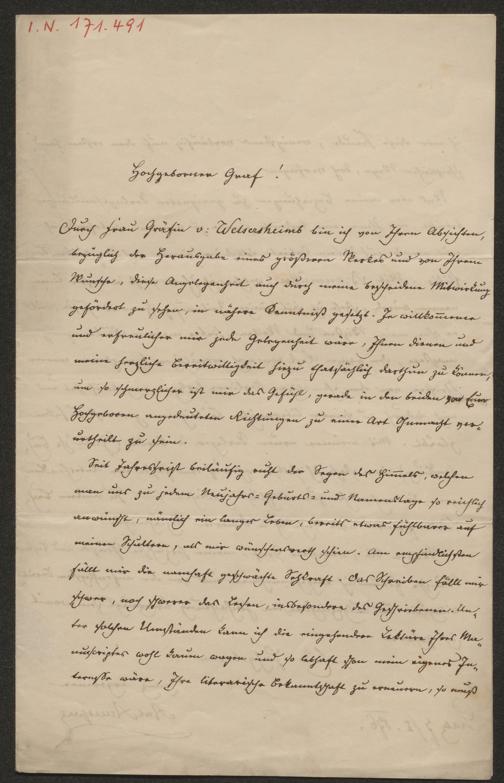 I.N. 171.491
Hochgeborner Graf!
Durch Frau Gräfin v: Welsersheimb bin ich von Ihren Absichten,
bezüglich der Herausgabe eines größeren Werkes und von Ihrem
Wunsche, diese Angelegenheit auch durch meine bescheidene Mitwirkung
gefördert zu sehen, in nähere Kenntniß gesetzt. Je willkommener
und erfreulicher mir jede Gelegenheit wäre, Ihnen dienen und
meine herzliche Bereitwilligkeit hiezu thatsächlich darthun zu können,
um so schmerzlicher ist mir das Gefühl, gerade in den beiden von Euer
Hochgeboren angedeuteten Richtungen zu einer Art Ohnmacht ver-
urtheilt zu sein.
Seit Jahresfrist beiläufig ruht der Segen des Himmels, welchen
man uns zu jedem Neujahrs- Geburts- und Namenstage so reichlich
anwünscht, nämlich ein langes Leben, bereits etwas fühlbarer auf
meinen Schultern, als mir wünschenswerth schien. Am empfindlichsten
fällt mir die namhaft geschwächte Sehkraft. Das Schreiben fällt mir
schwer, noch schwerer das Lesen, insbesondere des Geschriebenen. Un-
ter solchen Umständen kann ich die eingehendere Lektüre Ihres Ma-
nuscriptes wohl kaum wagen und so lebhaft schon mein eigenes In-
teresse wäre, Ihre literarische Bekanntschaft zu erneuern, so muß